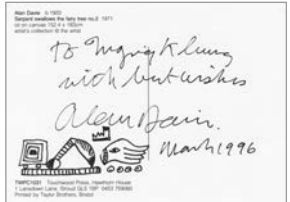 Alan Davie b.1920
Serpent swallows the fairy tree no.2 1971
oil on canvas 152.4 x 183cm
artist's collection © the artist
To
with best wishes
Alan Davie.
March 1996
TWPC1031 Touchwood Press, Hawthorn House
1 Lansdown Lane, Stroud GL5 1BP 0453 759060
Printed by Taylor Brothers, Bristol